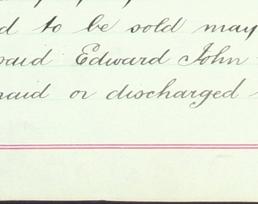 d to be sold may
said Edward John
paid or discharged